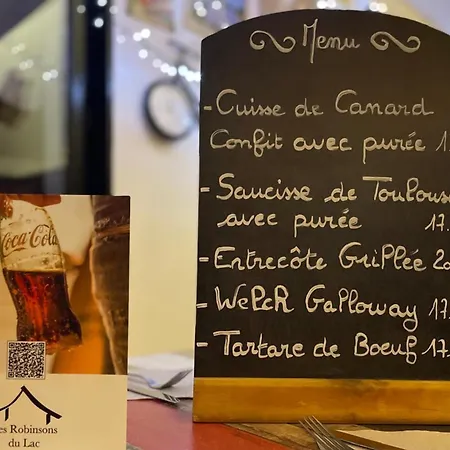 Menu
- Cuisse de Canard
Confit avec purée 1
- Saucisse de Toulouse
avec purée 17.
- Entrecôte Grillée 20
- Welch Galloway 17.
- Tartare de Boeuf 17.
Coca-Cola
es Robinsons
du Lac